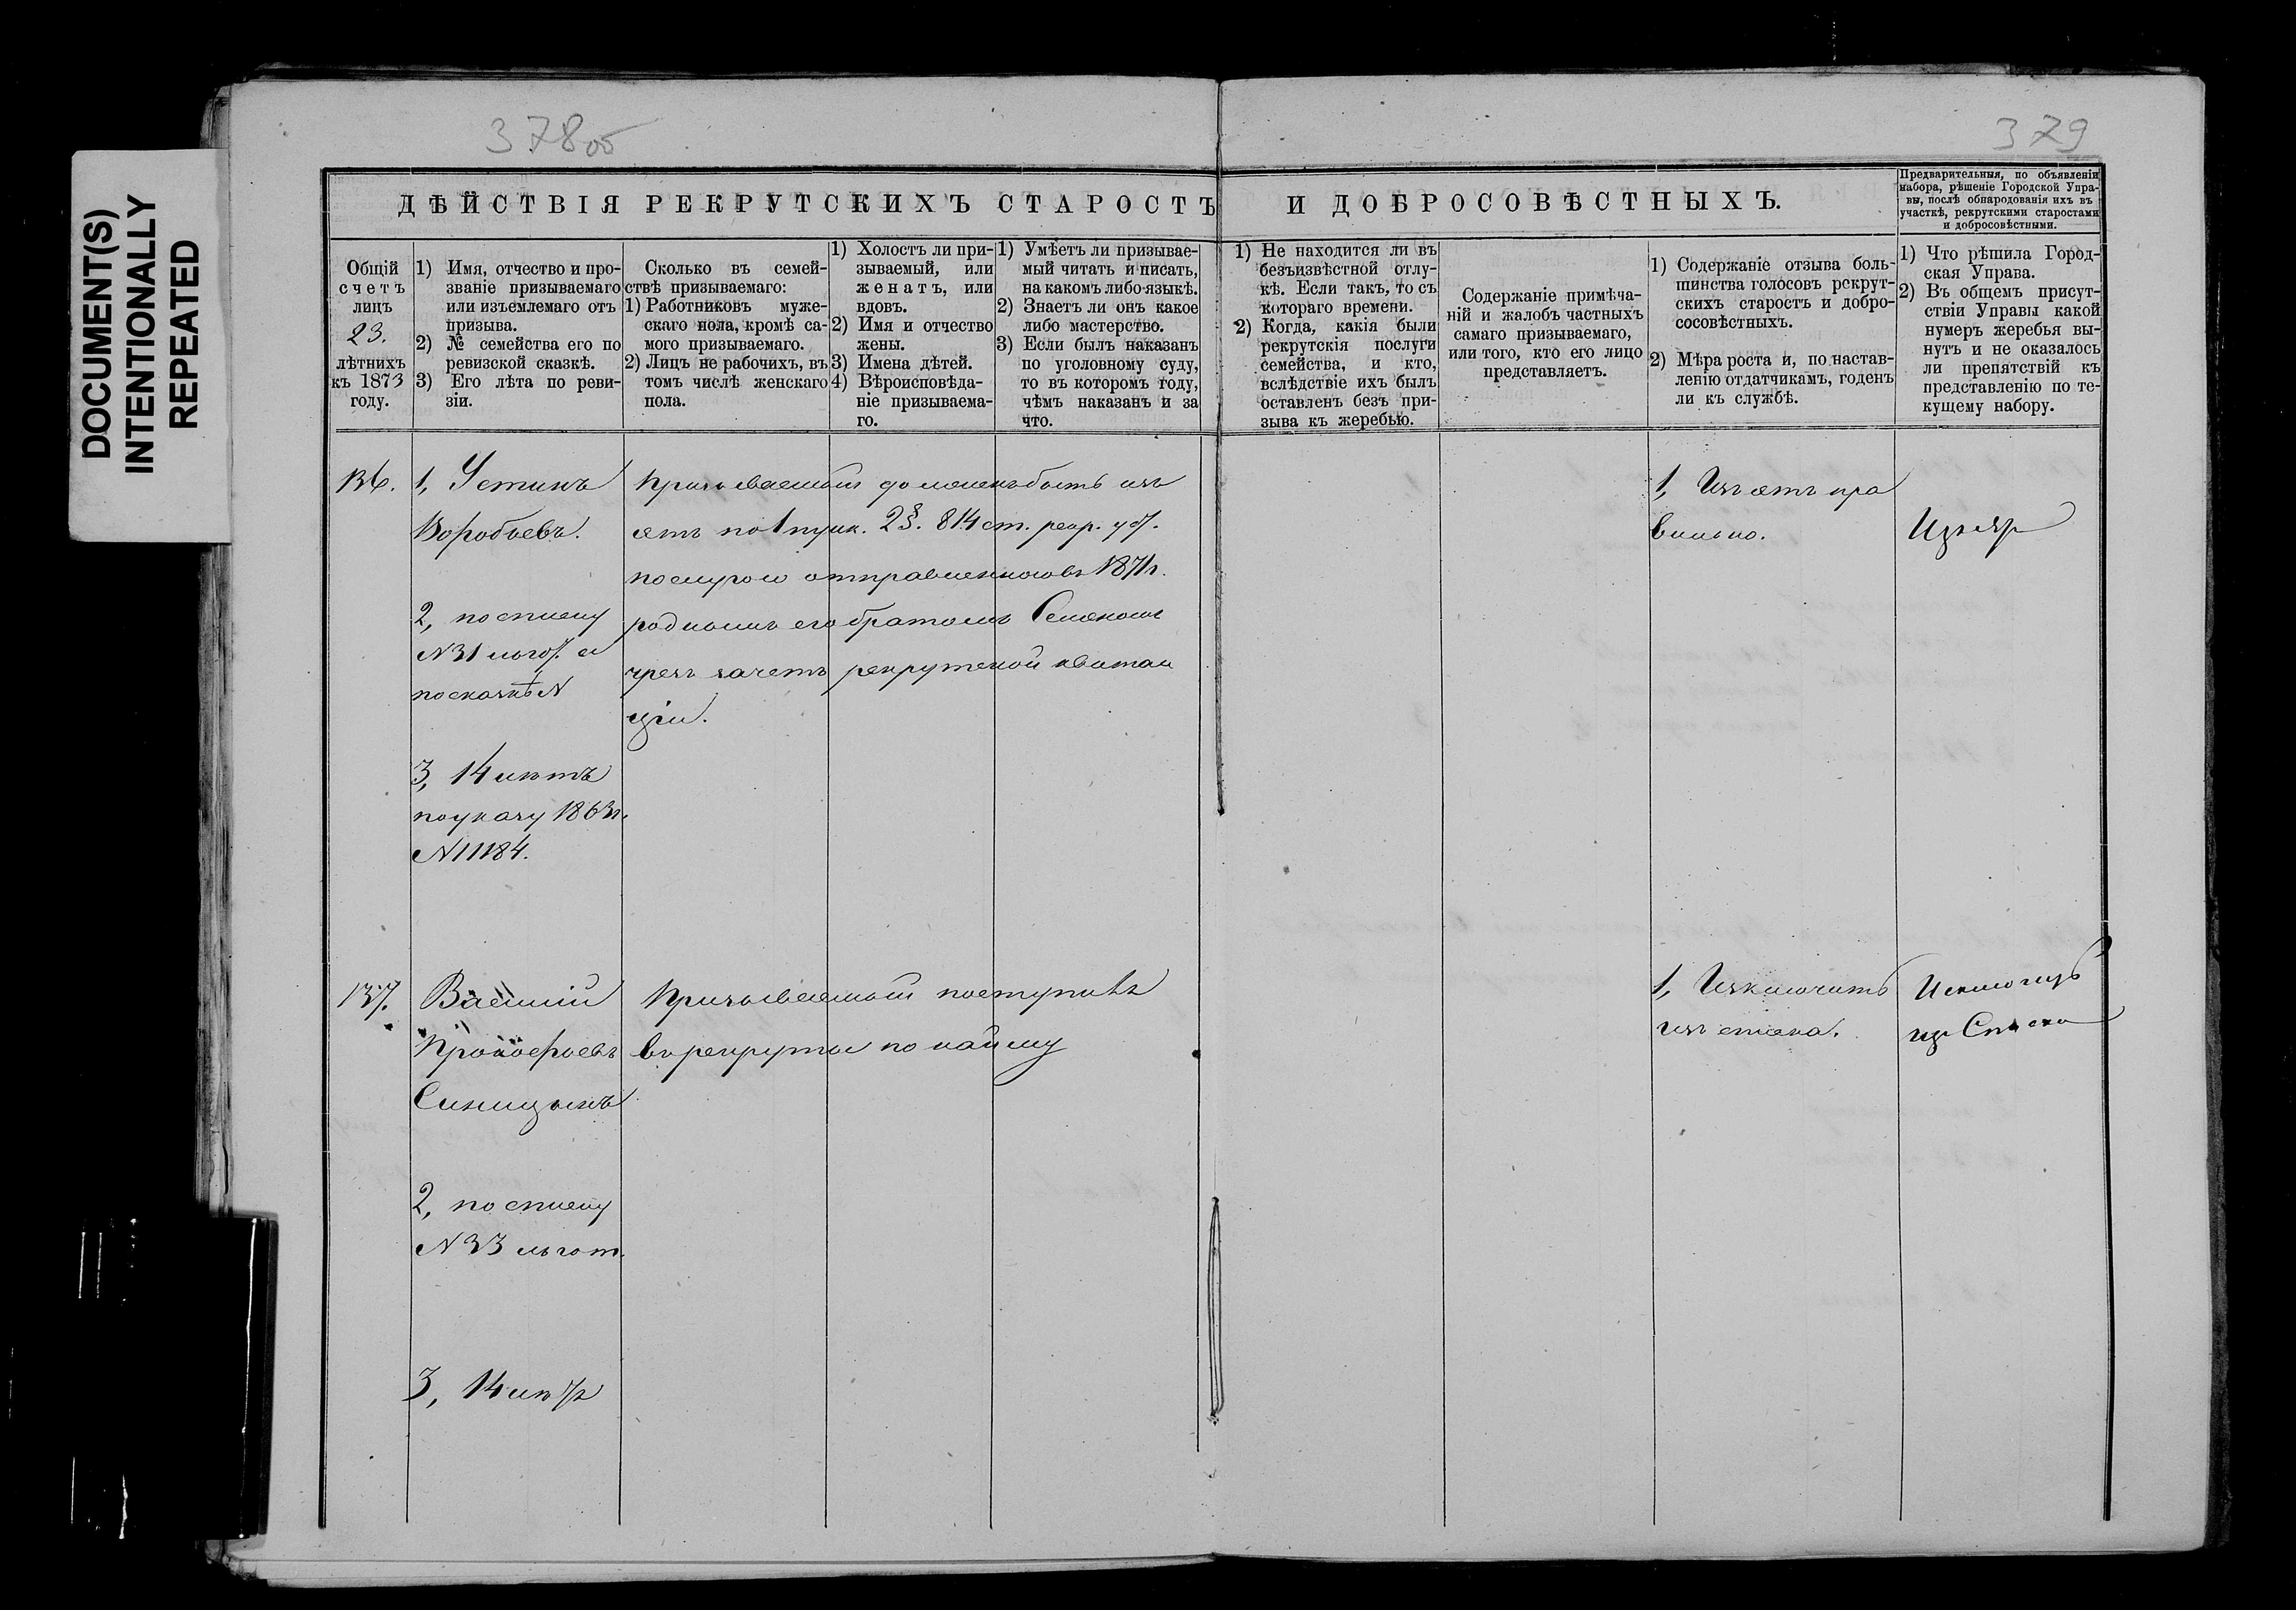 DOCUMENT(S)
INTENTIONALLY
REPEATED
378об
379
ДѢЙСТВІЯ РЕКРУТСКИХЪ СТАРОСТЪ И ДОБРОСОВѢСТНЫХЪ.
Предварительныя, по объявленіи
набора, рѣшеніе Городской Упра-
вы, послѣ обнародованія ихъ въ
участкѣ, рекрутскими старостами
и добросовѣстными.
Общій
счетъ
лицъ
23.
лѣтнихъ
къ 1873
году.
1) Имя, отчество и про-
званіе призываемаго
или изъемлемаго отъ
призыва.
2) № семейства его по
ревизской сказкѣ.
3) Его лѣта по реви-
зіи.
Сколько въ семей-
ствѣ призываемаго:
1) Работниковъ муже-
скаго пола, кромѣ са-
мого призываемаго.
2) Лицъ не рабочихъ, въ
томъ числѣ женскаго
пола.
1) Холостъ ли при-
зываемый, или
женатъ, или
вдовъ.
2) Имя и отчество
жены.
3) Имена дѣтей.
4) Вѣроисповѣда-
ніе призываема-
го.
1) Умѣетъ ли призывае-
мый читать и писать,
на какомъ либо языкѣ.
2) Знаетъ ли онъ какое
либо мастерство.
3) Если былъ наказанъ
по уголовному суду,
то въ которомъ году,
чѣмъ наказанъ и за
что.
1) Не находится ли въ
безъизвѣстной отлу-
кѣ. Если такъ, то съ
котораго времени.
2) Когда, какія были
рекрутскія послуги
семейства, и кто,
вслѣдствіе ихъ былъ
оставленъ безъ при-
зыва къ жеребью.
Содержаніе примѣча-
ній и жалобъ частныхъ
самаго призываемаго,
или того, кто его лицо
представляетъ.
1) Содержаніе отзыва боль-
шинства голосовъ рекрут-
скихъ старостъ и добро-
сосовѣстныхъ.
2) Мѣра роста и, по настав-
ленію отдатчикамъ, годенъ
ли къ службѣ.
1) Что рѣшила Город-
ская Управа.
2) Въ общемъ присут-
ствіи Управы какой
нумеръ жеребья вы-
нутъ и не оказалось
ли препятствій къ
представленію по те-
кущему набору.
136.
1, Устинъ
Воробьевъ.
2, по списку
N31 льгот. а
по сказкѣ N
3, 14 лѣтъ
по указу 1863г.
N11184.
Призываемый долженъ быть изъ
ятъ по 1 пунк. 2§. 814 ст. рекр. уст.
послугою отправленною въ 1871г.
роднымъ его братомъ Семеномъ
чрезъ зачетъ рекрутской квитан
ціи.
1, Изъятъ пра
вильно.
Изъятъ
137.
Василій
Прокофьевъ
Синицынъ
2, по списку
N33 льгот.
3, 14 лѣтъ
Призываемый поступилъ
въ рекруты по найму
1, Изключить
изъ списка.
Исключить
изъ Списка